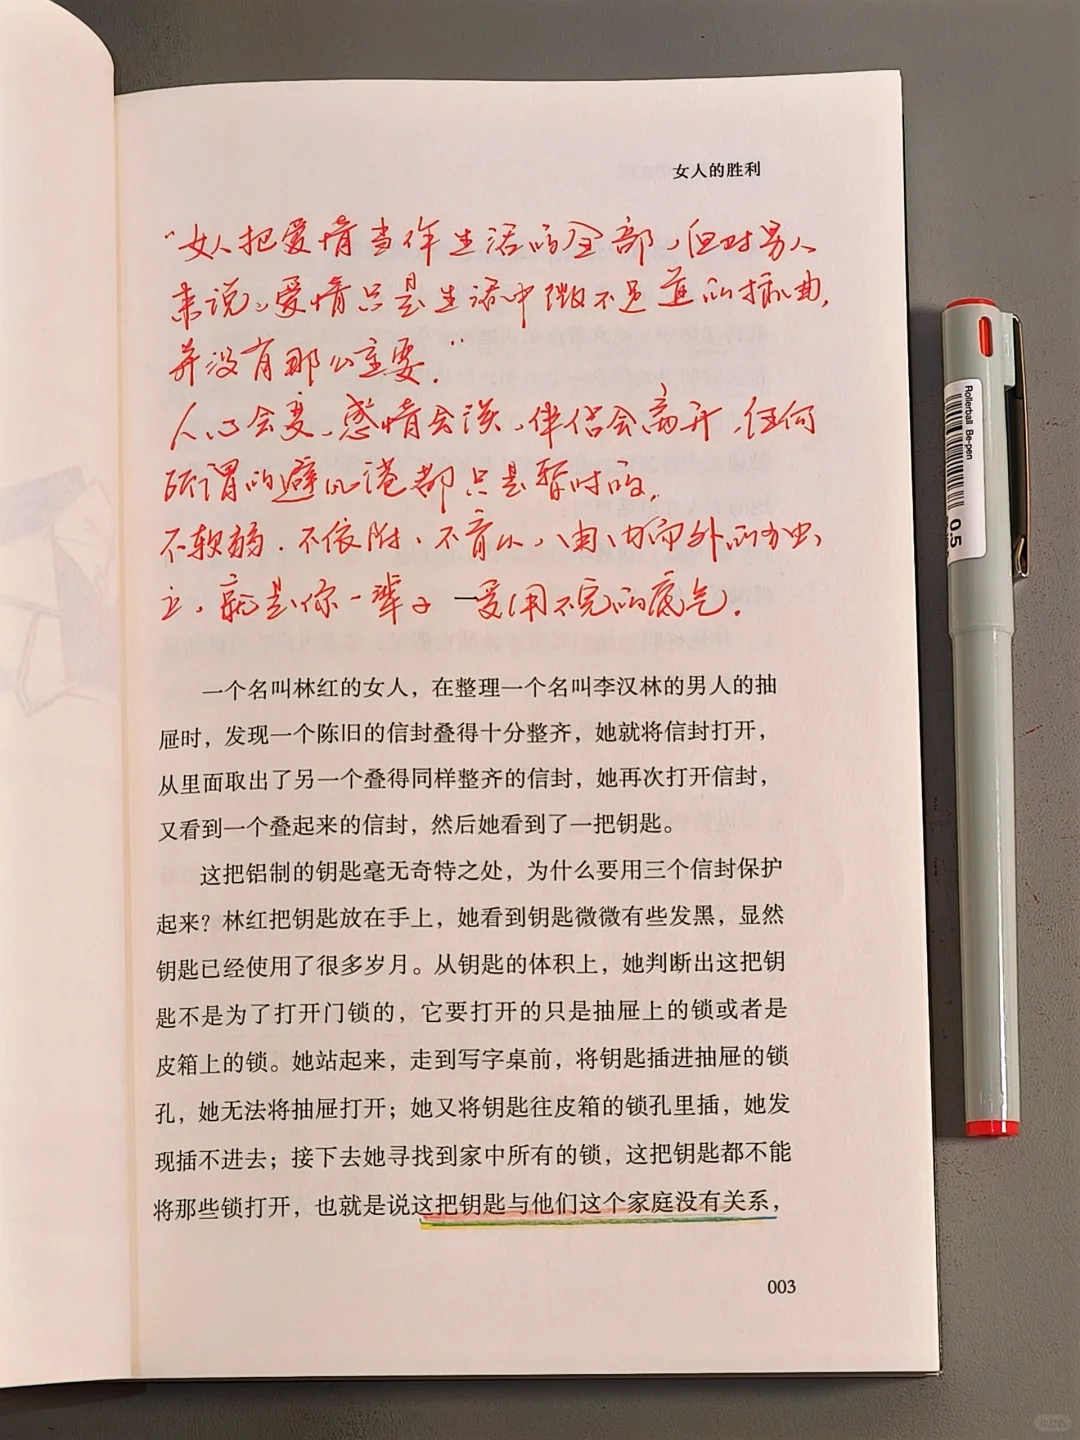 女人的胜利
“女人把爱情当作生活的全部，但对男人
来说，爱情只是生活中微不足道的插曲，
并没有那么重要。”
人心会变，感情会淡，伴侣会离开，任何
所谓的避风港都只是暂时的，
不软弱、不依附、不盲从，由内而外的独
立，就是你一辈子受用不完的底气。
一个名叫林红的女人，在整理一个名叫李汉林的男人的抽
屉时，发现一个陈旧的信封叠得十分整齐，她就将信封打开，
从里面取出了另一个叠得同样整齐的信封，她再次打开信封，
又看到一个叠起来的信封，然后她看到了一把钥匙。
这把铝制的钥匙毫无奇特之处，为什么要用三个信封保护
起来？林红把钥匙放在手上，她看到钥匙微微有些发黑，显然
钥匙已经使用了很多岁月。从钥匙的体积上，她判断出这把钥
匙不是为了打开门锁的，它要打开的只是抽屉上的锁或者是
皮箱上的锁。她站起来，走到写字桌前，将钥匙插进抽屉的锁
孔，她无法将抽屉打开；她又将钥匙往皮箱的锁孔里插，她发
现插不进去；接下去她寻找到家中所有的锁，这把钥匙都不能
将那些锁打开，也就是说这把钥匙与他们这个家庭没有关系，
003
Rollerball Be-pen
0.5